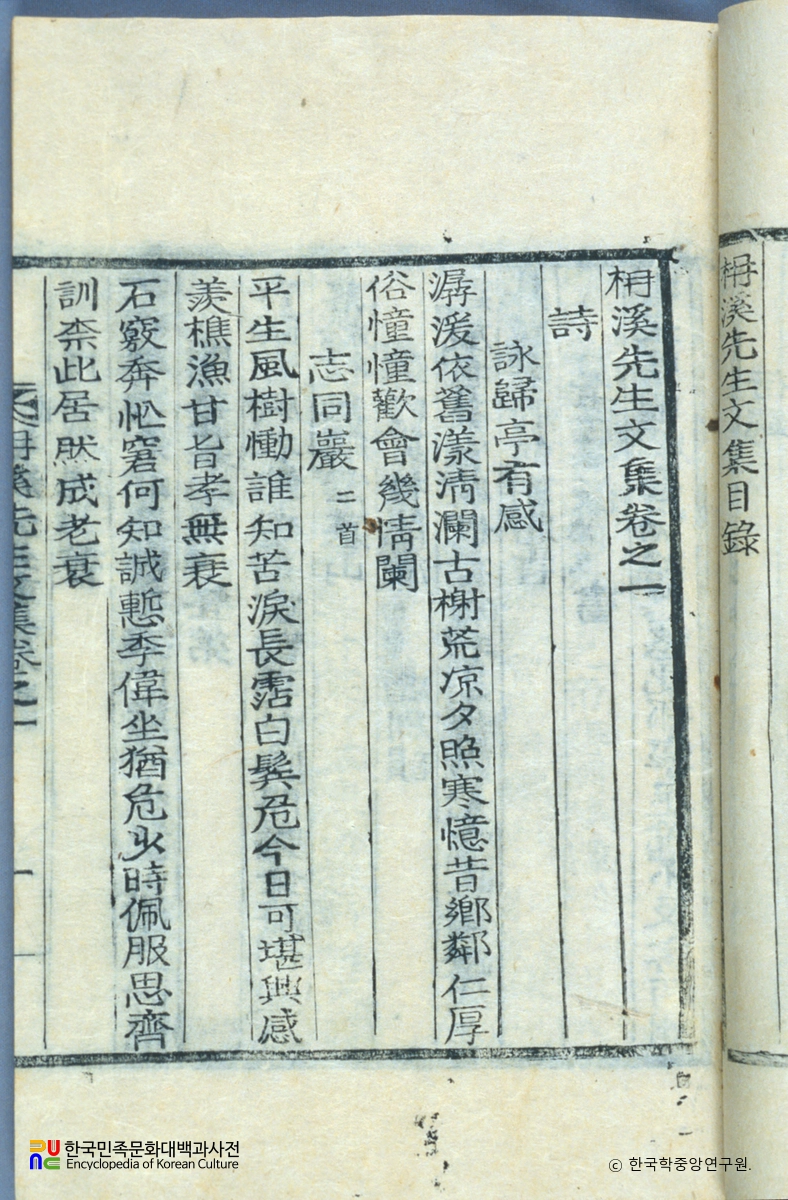 枏溪先生文集目錄
枏溪先生文集卷之一
詩
詠歸亭有感
潺湲依舊漾淸瀾古榭荒凉夕照寒憶昔鄕鄰仁厚
俗憧憧歡會幾情闌
志同巖 二首
平生風樹慟誰知苦淚長霑白鬂危今日可堪興感
羨樵漁甘旨孝無衰
石竅奔忙窘何知誠慙季偉坐猶危少時佩服思齊
訓柰此居然成老衰
枏溪先生文集卷之一
一
한국민족문화대백과사전
Encyclopedia of Korean Culture
© 한국학중앙연구원.